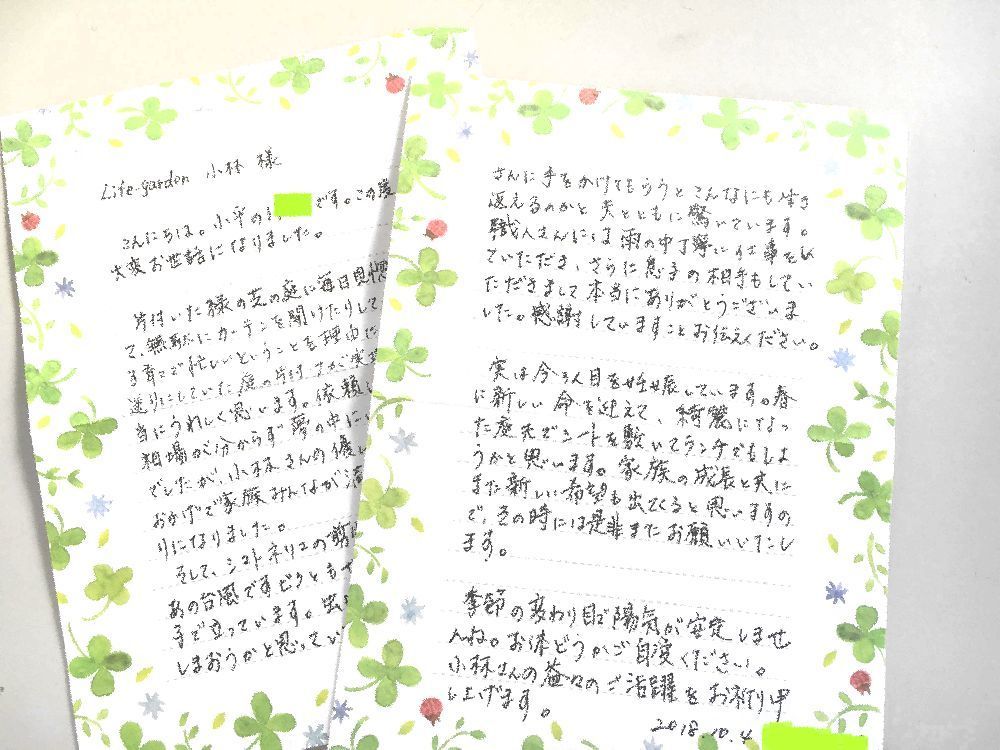 Life-garden 小林 様
こんにちは。小平の です。この度
大変お世話になりました。
片付いた緑の芝の庭に毎日見慣
て、無駄にカーテンを開けたりして
子育てで忙しいということを理由に
送りにしていた庭の片付けが実現
当にうれしく思います。依頼
相場が分からず 夢の中に
でしたが、小林さんの優し
おかげで家族みんなが満
りになりました。
そして、シマトネリコの剪
あの台風ですビクともせ
手で立っています。
しまおうかと思ってい
さんに手をかけてもらうとこんなにも生き
返えるのかと 夫とともに驚いています。
職人さんには 雨の中丁寧に仕事をし
ていただき、さらに息子の相手もしてい
ただきまして本当にありがとうございま
した。感謝していますことお伝えください。
実は今3人目を妊娠しています。春
に新しい命を迎えて、綺麗になっ
た庭先でシートを敷いてランチでもしよ
うかと思います。家族の成長と共に
また新しい希望も出てくると思いますの
で、その時には是非またお願いいたし
ます。
季節の変わり目で陽気が安定しませ
んね。お体どうかご自愛ください。
小林さんの益々のご活躍をお祈り申
し上げます。
2018.10.4